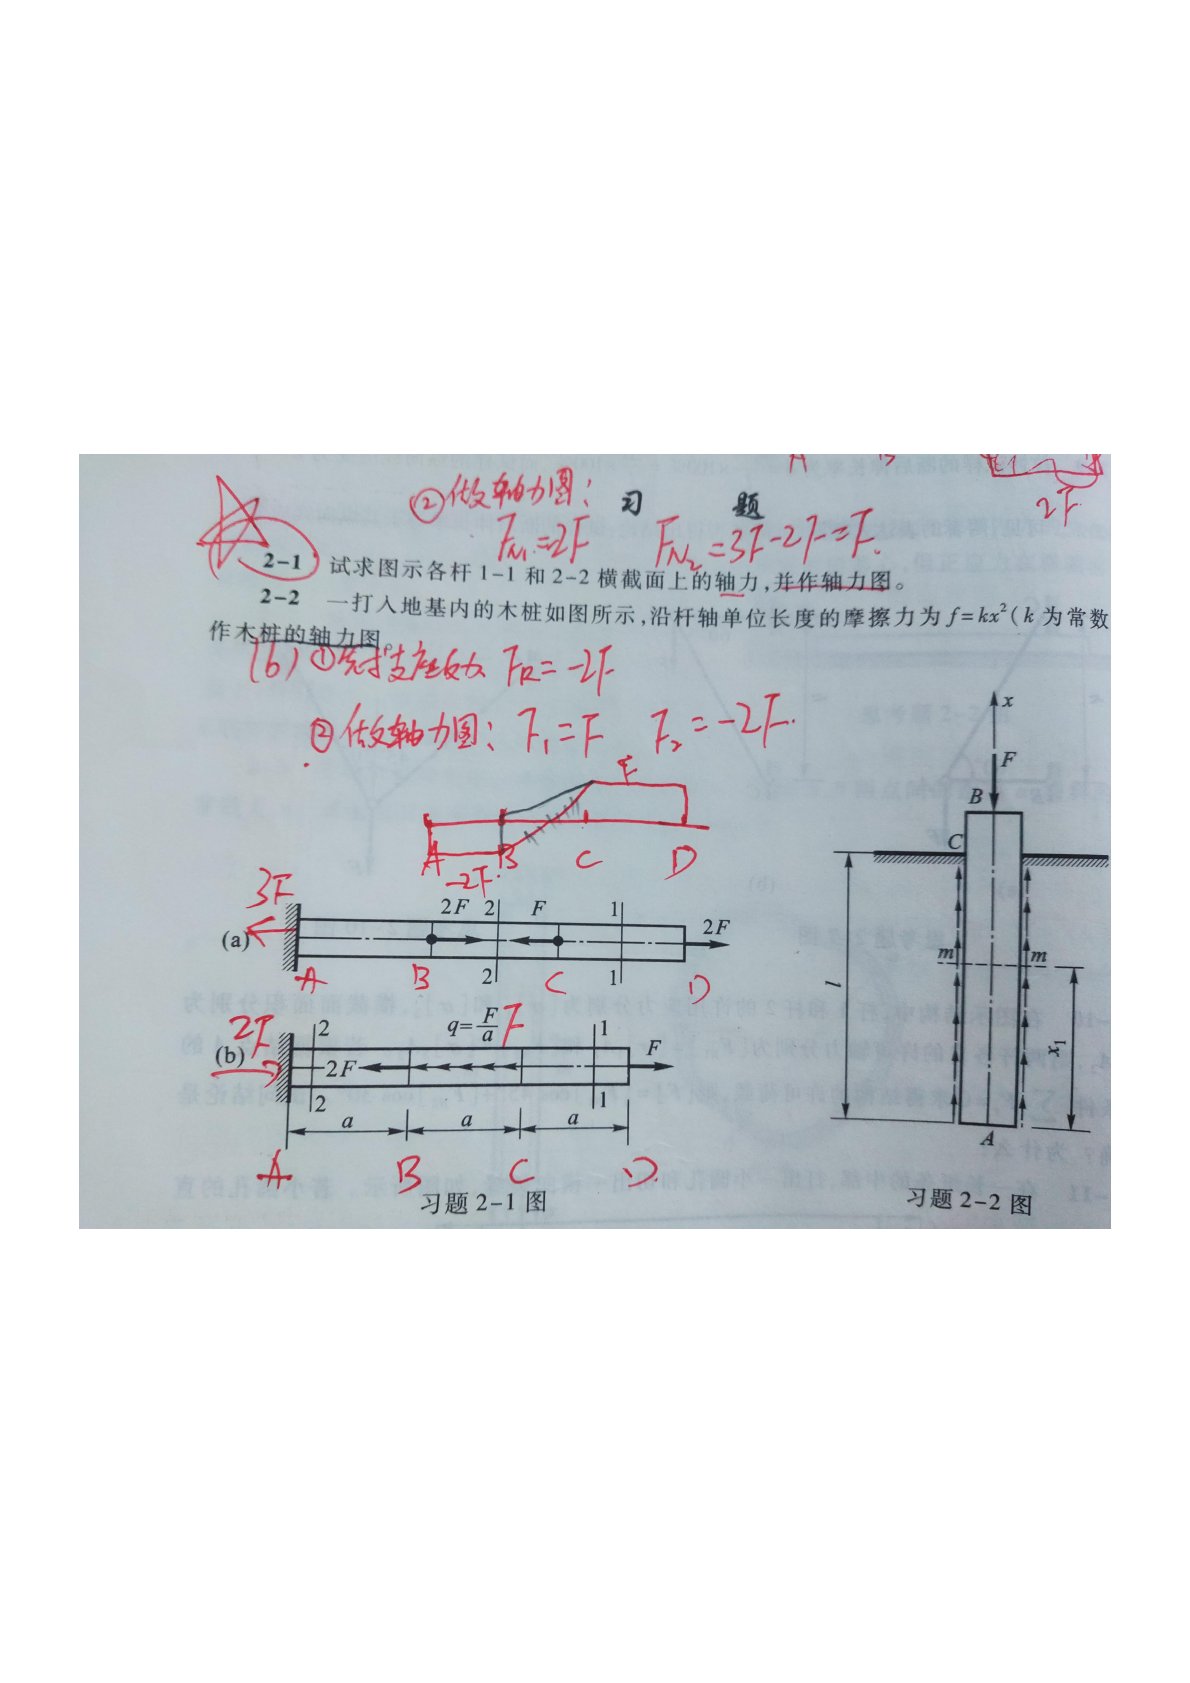 A B
2F
② 做轴力图：
习 题
FN1=2F FN2=3F-2F=F.
2-1 试求图示各杆 1-1 和 2-2 横截面上的轴力,并作轴力图。
2-2 一打入地基内的木桩如图所示,沿杆轴单位长度的摩擦力为 f=kx²(k 为常数
作木桩的轴力图。
(b) ①先求支座反力 FR=-2F
② 做轴力图： F1=F F2=-2F.
F
A B C D
-2F
3F
(a)
2F 2 F 1 2F
2 1
A B C D
2F
(b)
2 q=F/a F 1
2F F
2 1
a a a
A B C D
习题 2-1 图
x
F
B
C
m m
l
x₁
A
习题 2-2 图